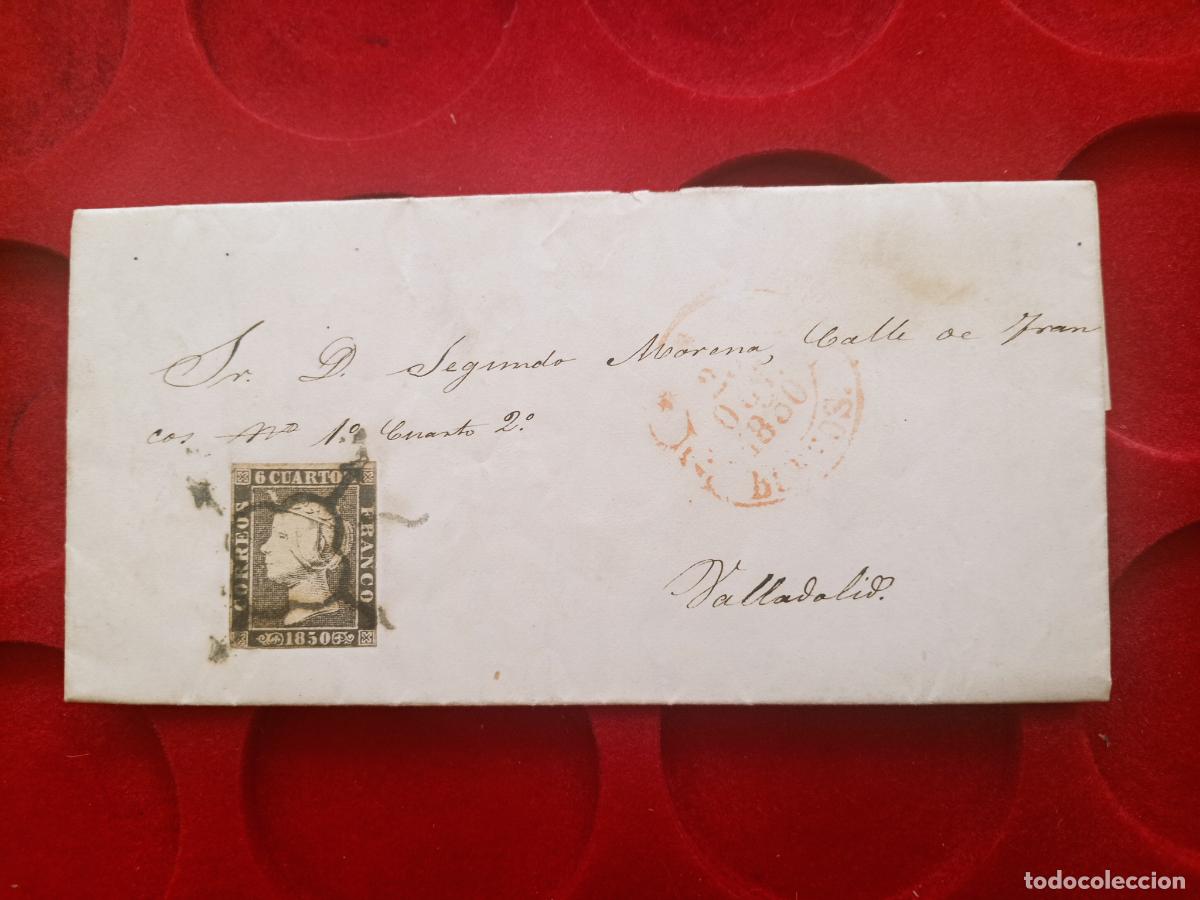 Sr. D. Segundo Morena, Calle de Fran
cos Nº 1º Cuarto 2º
6 CUARTOS
CORREOS
FRANCO
1850
1850
BURGOS.
Valladolid.
todocoleccion